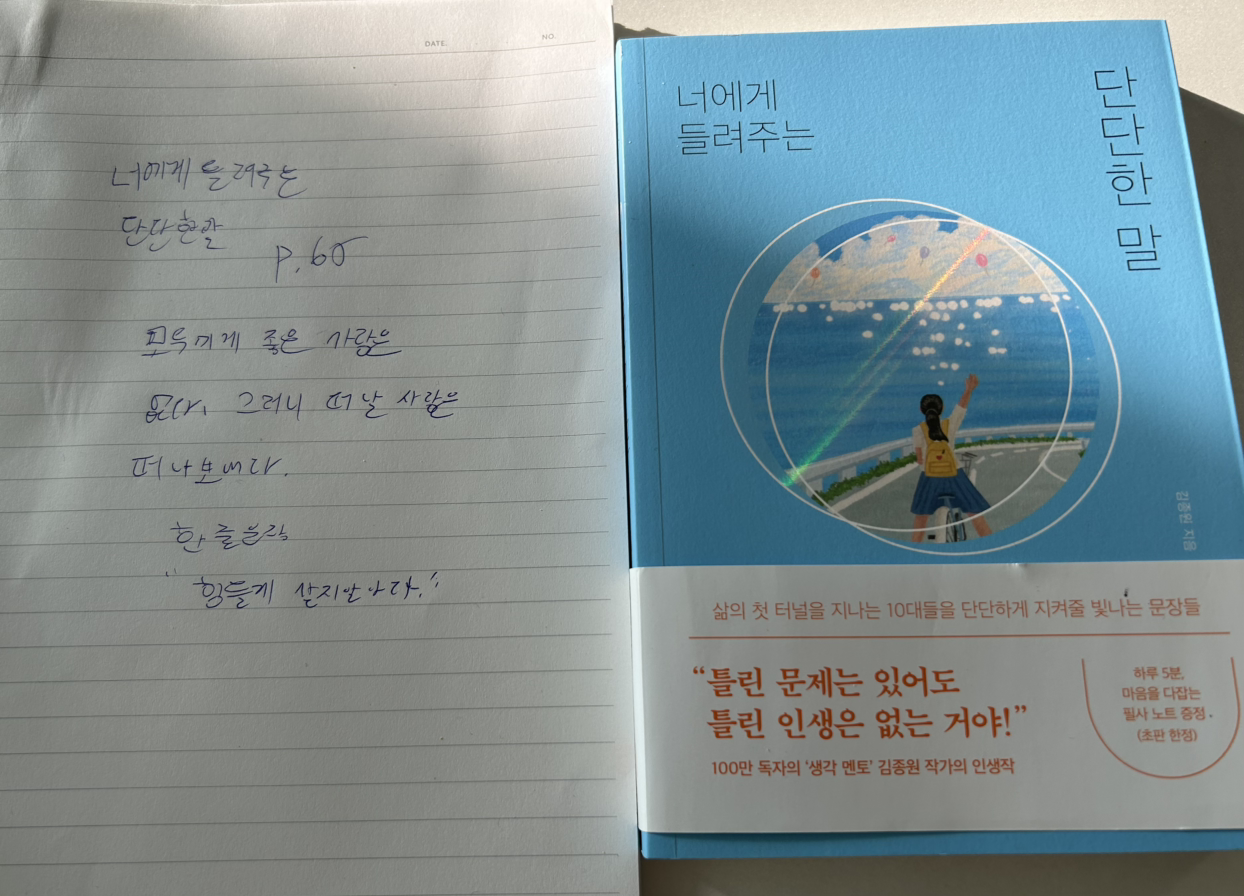 DATE. NO.
너에게 들려주는
단단한말
p.65
모두에게 좋은 사람은
없다. 그러니 떠날 사람은
떠나보내다.
한 줄
"힘들게 살지않아다."
너에게
들려주는
단단한 말
김종원 지음
삶의 첫 터널을 지나는 10대들을 단단하게 지켜줄 빛나는 문장들
“틀린 문제는 있어도
틀린 인생은 없는 거야!”
100만 독자의 ‘생각 멘토’ 김종원 작가의 인생작
하루 5분,
마음을 다잡는
필사 노트 증정
(초판 한정)